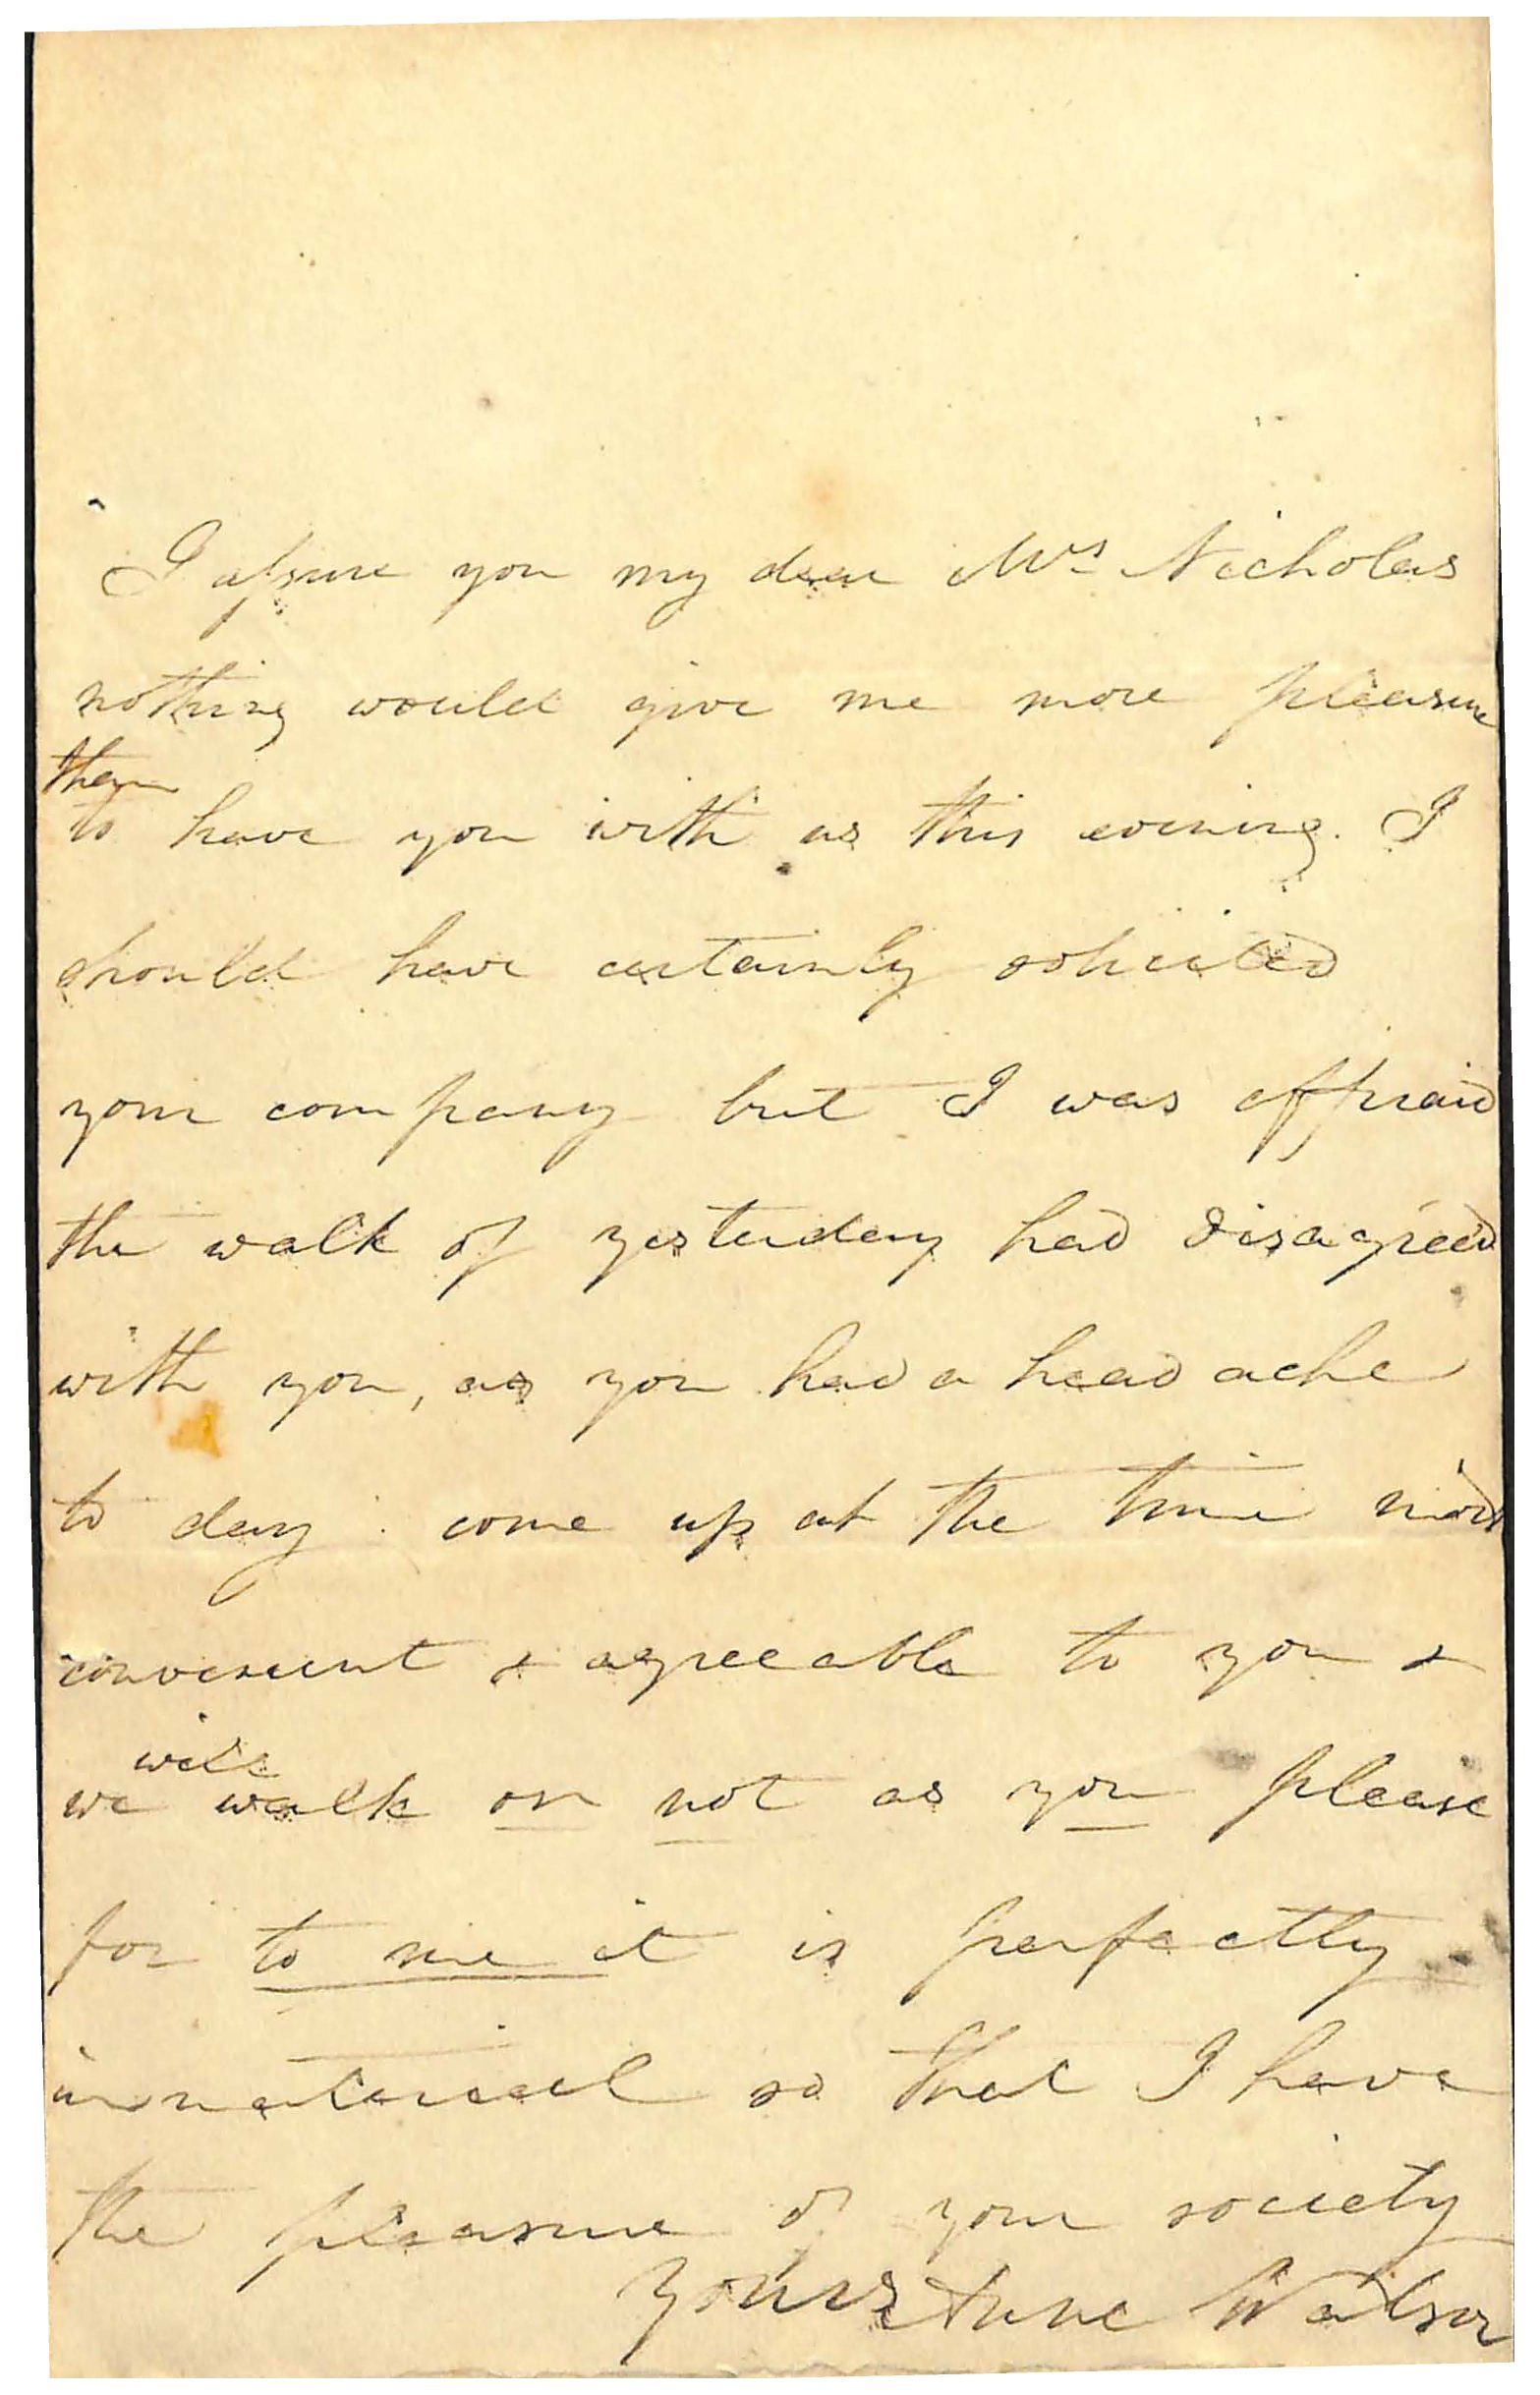 I assure you my dear Mrs Nicholas
nothing would give me more pleasure
than
to have you with us this evening. I
should have certainly solicited
your company but I was affraid
the walk of yesterday had disagreed
with you, as you had a head ache
to day. come up at the time most
convenient & agreeable to you &
will
we walk or not as you please
for to me it is perfectly
immaterial so that I have
the pleasure of your society
Yours Anne Watson